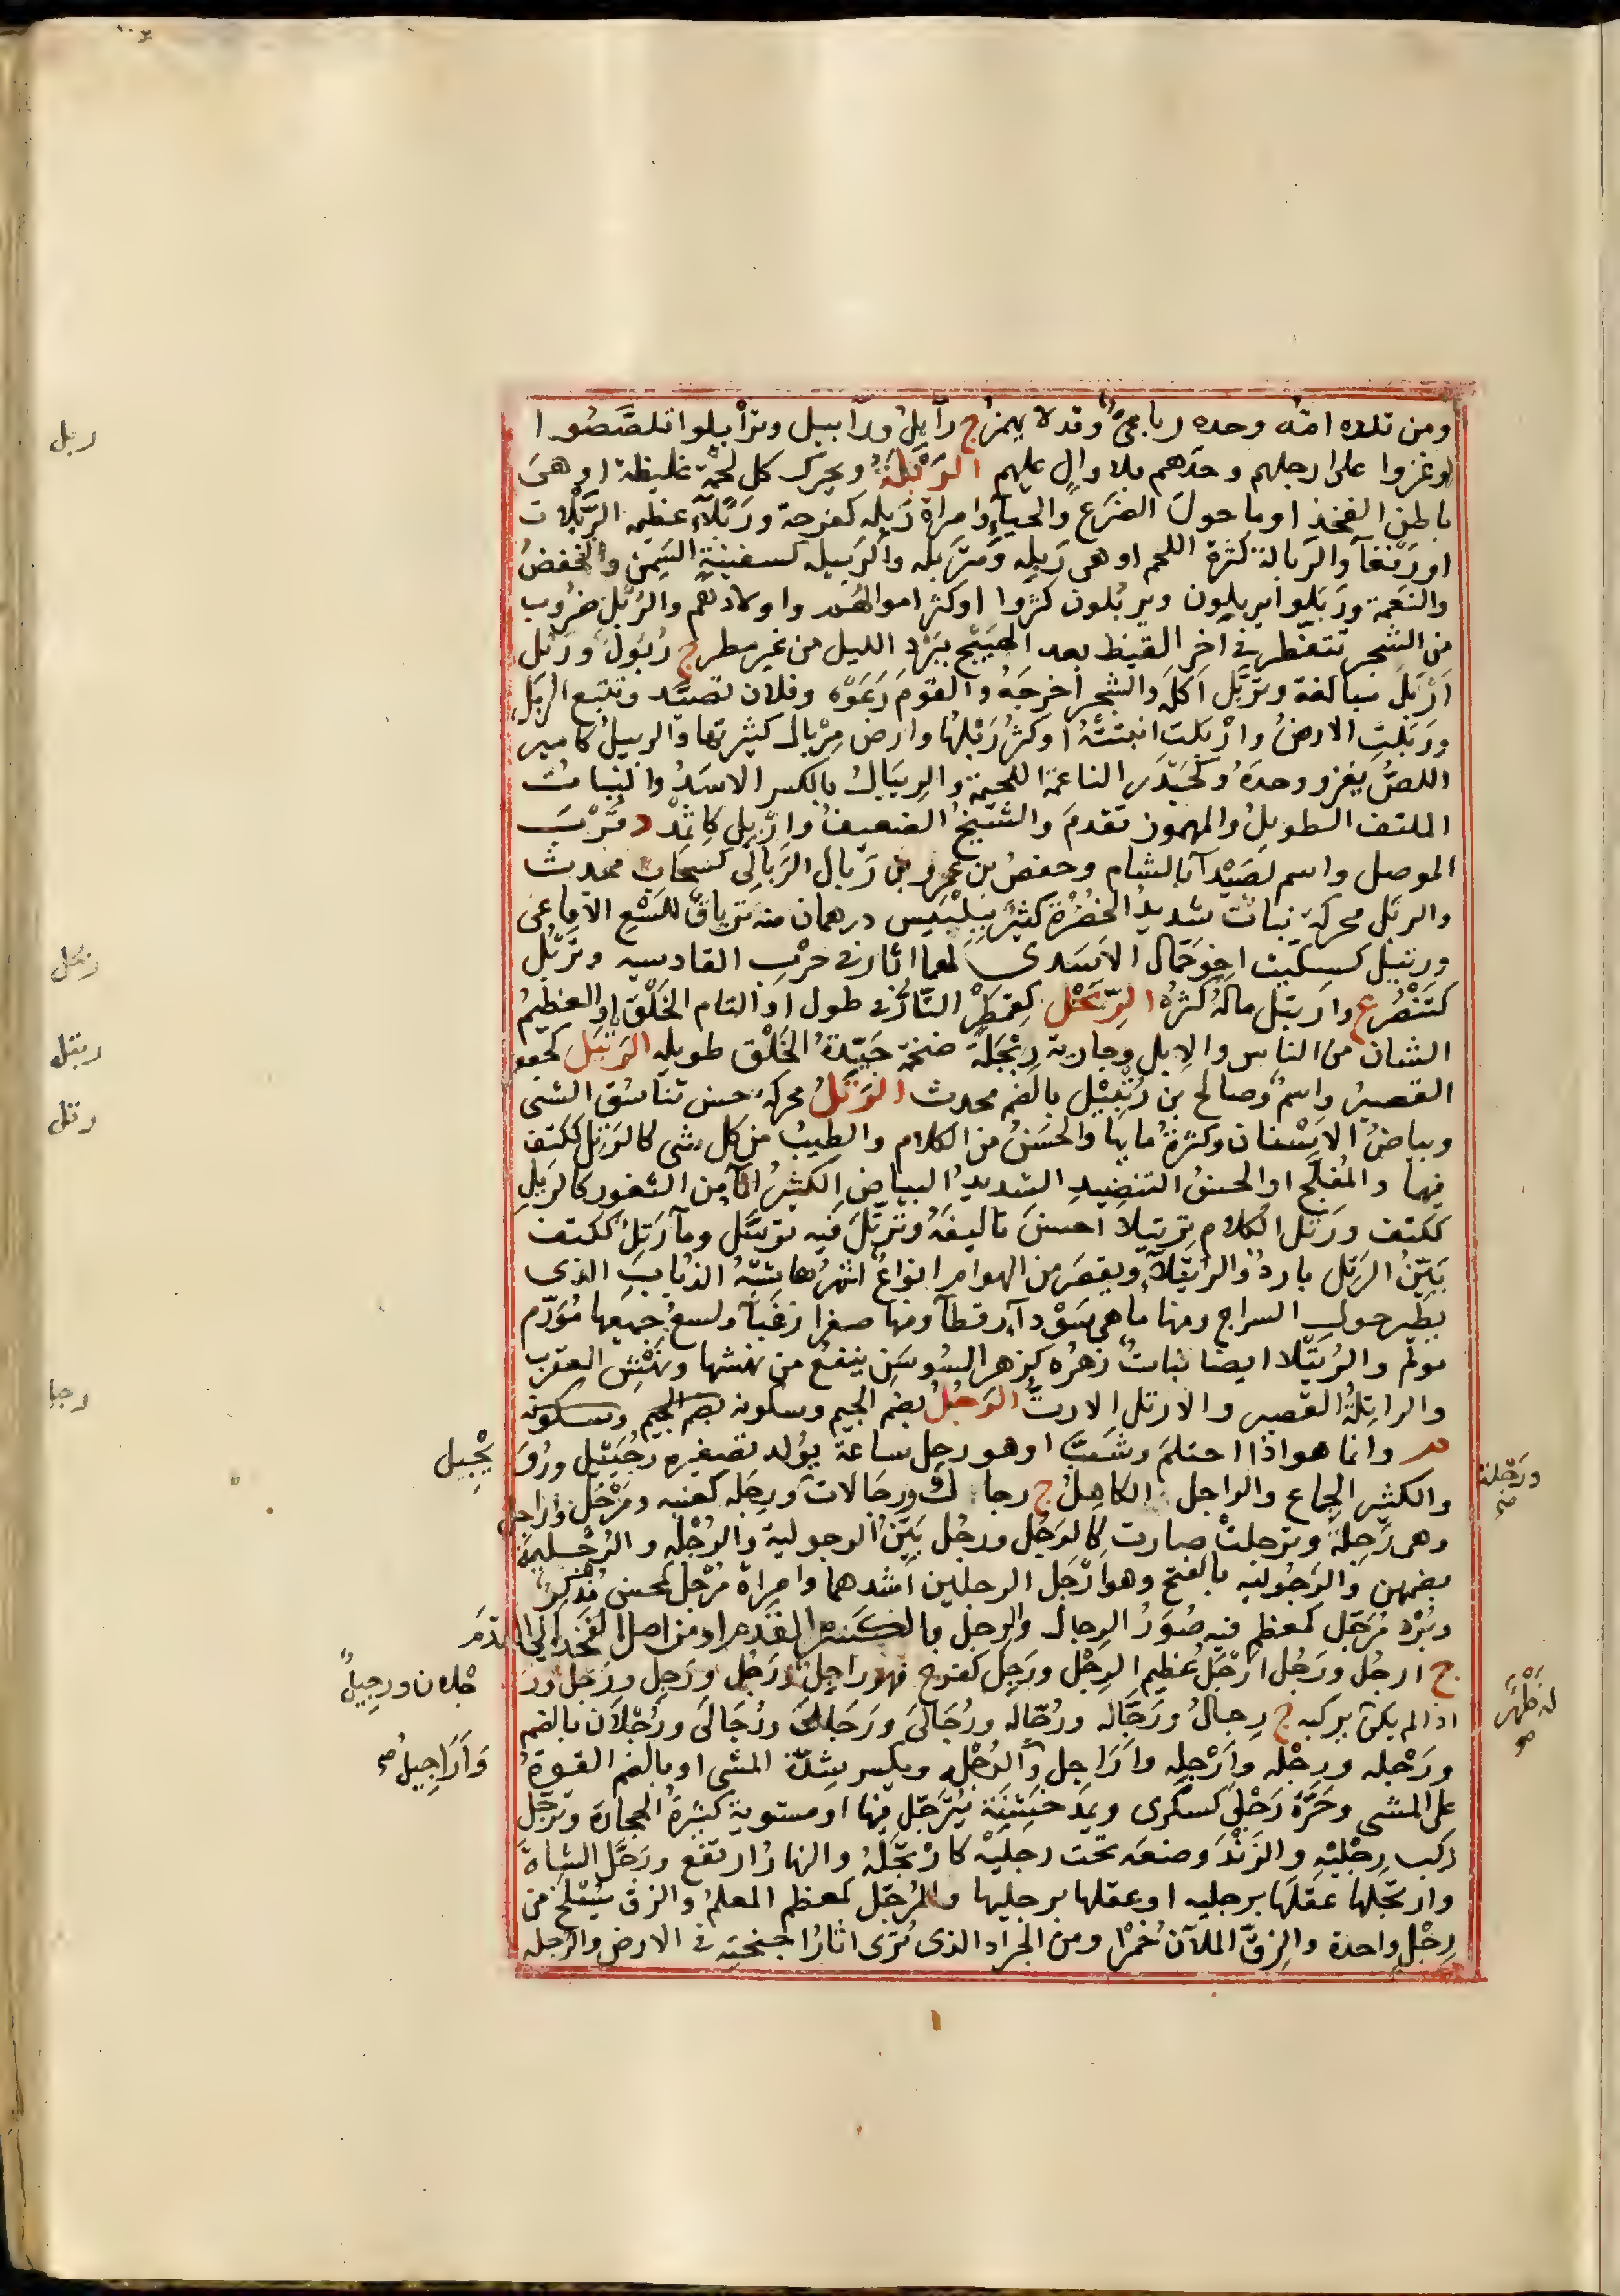 ومن تلده امّه وحده رباعىّ وقد لا يهمز ج رآبلُ ورآبيل وترأبلوا تلصّصُوا
او غزوا على ارجلهم وحدهم بلا والٍ عليهم الرَبْلَةُ ويحرك كل لحمة غليظة او هى
باطن الفخذ او ما حول الضَرع والحيآء وامراة رَبِله كفرحة ورَبْلآء عظيمه الرَّبَلات
او رَفغآ والرَبالة كثرة اللحم او هى رَبِله ومُترَبله والرَبيله كسفينةٍ السِمن والخفضُ
والنَعمة ورَبَلوا يربِلون ويربُلون كثروا او كثر اموالهم واولادهم والرَبْل ضروب
من الشجر تتفطر فى اخر القيظ بعد الهَيْج ببَرْدِ الليل من غير مطر ج رُبُول ورَبْل
اَرْبَلُ مبالغة وتَرَبَّل اَكَلَه والشجر اخرجَهُ والقومُ رَعَوْه وفلان تصيّد وتتبع الربْل
ورَبَلتِ الارضُ وارْبَلت انبتتْهُ او كثر رَبْلها وارض مِرْبال كثيرتها والربيلُ كامير
اللصُّ يغزو وحدَهُ وكحَيْدَر الناعمة اللحيمة والريبالُ بالكسر الاسَدُ والنبات
الملتف الطويلُ والمهموز تقدمَ والشيخُ الضعيفُ واِرْبِل كاِثْمِد د قُرْبَ
الموصل واسم لصَيْدآ بالشام وحفصُ بن عمرو بن رَبال الرَبالِى كسحابٍ محدث
والربَل محركة نبات شديدُ الخُضْرةِ كثيرٌ ببِلْبَيس درهمان منه ترياقٌ للَسْعِ الافاعى
وربّيل كسِكّيت اخو حَمّال الاسَدى لهما اثار فى حرْبِ القادسيه وتَرْبُل
كتَنْصُر ع وارتبل ماله كثرُ الرِّبَحْل كقِمَطرْ التّارُّ فى طول او التام الخَلْق او العظيمُ
الشان من الناس والابل وجارية رِبْحَلَة ضخمة جَيِّدةُ الخَلْق طويله الرَتْبَل كجعفر
القصيرُ واسمٌ وصالح بن رُتْبيل بالضم محدث الرَتَلُ محركة حسن تناسُق الشى
وبياضُ الاسْنان وكثرةُ مايها والحَسَنُ من الكلام والطيبُ من كل شى كالرَتِل ككتف
فيهما والمُفَلَّج او الحسنُ التنضيدِ الشديدُ البياض الكثيرُ المآء من الثغور كالرَتِل
ككتف ورَتّل الكلام ترتيلا احسنَ تاليفَهُ وتَرَتَّلَ فيه ترسّلَ ومآ رَتِلٌ ككتف
بَيّنُ الرَتَل باردٌ والرُتَيْلآءُ ويقصر من الهوام انواعٌ اشهرُها شِبْهُ الذُباب الذى
يطير حول السراج ومنها ما هى سَوْدآء رقطآ ومنها صفرا زغبآ ولسعُ جميعها مُوَرّم
مولم والرُتَيْلا ايضا نباتٌ زهرُه كزهر السُوسَنِ ينفعُ من نهشها ونَهْش العقرب
والراتِلةُ القصير والارتل الارتّ الرَجُلُ بضم الجيم وسكونه بضم الجيم وسكونه
م وانما هو اذا احتلم وشَبّ او هو رجل ساعة يولد تصغيره رُجَيْل ورُوَ يْجِيل
والكثير الجماع والراجل الكامِلُ ج رجال ورجالات ورِجَلة كعنبه ومَرْجَل واراجل
وهى رَجُلةٌ وترجلتْ صارت كالرَجُل ورجُل بَيّنُ الرجولية والرُجْله والرُجْليةُ
بضمهن والرَجُولية بالفتح وهو اَرْجَل الرجلين اشدهما وامراة مُرْجل كمحسن مُذكِرٌ
وبُرْد مُرَجّل كمعظم فيه صُوَرُ الرجال والرجل بالكسر القدم او من اصل الفخذ الى القدَم
ج ارجُل ورَجُل اَرْجَل عظيم الرجْل ورَجِل كفرح فهو راجل ورَجُل ورَجِل ورَجْل ورَ جْلان ورجيلٌ
اذا لم يكن يركبه ج رجالٌ ورَجّاله ورُجّاله ورُجَالى ورَجَالى ورُجّالَى ورُجْلان بالضم
ورَجْله ورِجْله واَرْجِله واَرَاجِل والرُجْلة ويكسر شِدّة المشى او بالضم القوةُ وَاَرَاجِيلُ
على المشى وحَرّةٌ رَجْلَى كسكرى ويمد خشِنَة يُترجّل فيها او مستوية كثيرةُ الحجارة وتَرجّل
ركب رِجْلَيْهِ والزَنْدَ وضعَه تحت رجلَيْه كارْتَجَلَهُ والنهارُ ارتفع ورَجَل الشاةَ
وارتجلها عقلَها برجليه او عقلها برجليها والمُرَجّل كمعظم المعلمُ والزق يُسْلَخُ من
رِجْلٍ واحدة والزقّ الملآن خَمْرًا ومن الجراد الذى تُرَى اثارُ اجنحته فى الارض والرِجله
ربل
ربحل
رتبل
رتل
رجل
ورَجْلة
له ظهر